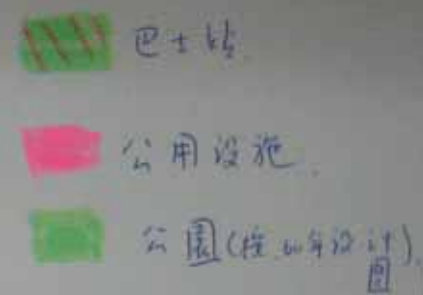 巴士站.
公用设施.
公園(按 设计).
图